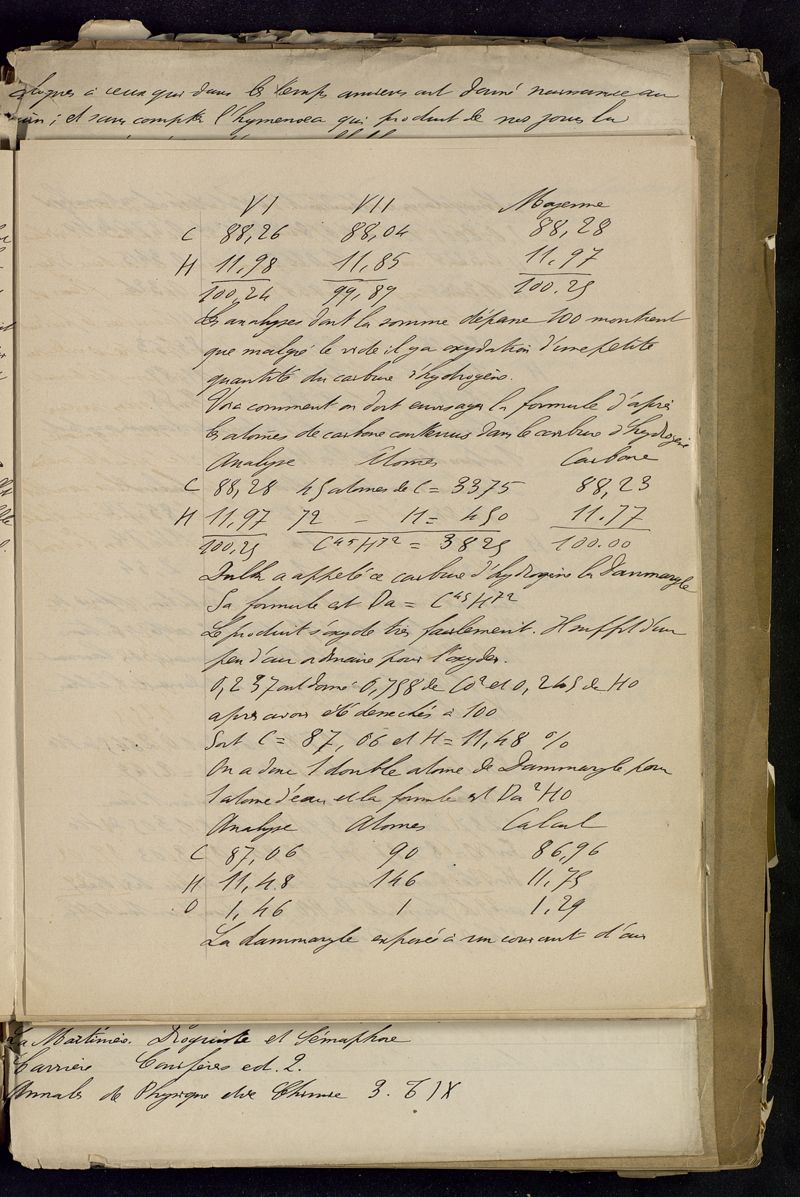 à ceux qui dans les temps anciens ont donné naissance au
; et sans compter l'hymenoea qui produit de nos jours la
VI VII Moyenne
C 88,26 88,04 88,28
H 11,98 11,85 11,97
100,24 99,89 100.25
Les analyses dont la somme dépasse 100 montrent
que malgré le vide il y a oxydation d'une petite
quantité du carbure d'hydrogène.
Voici comment on doit envisager la formule d'après
les atomes de carbone contenus dans le carbure d'hydrogène
Analyse Atomes Carbone
C 88,28 45 atomes de C = 3375 88,23
H 11,97 72 — H = 450 11.77
100,25 C45H72 = 3825 100.00
a appelé ce carbure d'hydrogène la Dammaryle
Sa formule est Da = C45H72
Le produit s'oxyde très facilement. Il suffit d'un
peu d'air ordinaire pour l'oxyder.
0,237 ont donné 0,758 de Co2 et 0,245 de HO
après avoir été desechés à 100
Soit C = 87,06 et H = 11,48 %
On a donc 1 double atome de Dammaryle pour
1 atome d'eau et la formule est Da2HO
Analyse Atomes Calcul
C 87,06 90 86,96
H 11,48 146 11,75
O 1,46 1 1,29
La dammaryle exposée à un courant d'air
La Martinière. Droguiste et Sémaphore
Carrière Conifères ed. 2.
Annales de Physique et de Chimie 3. T IX